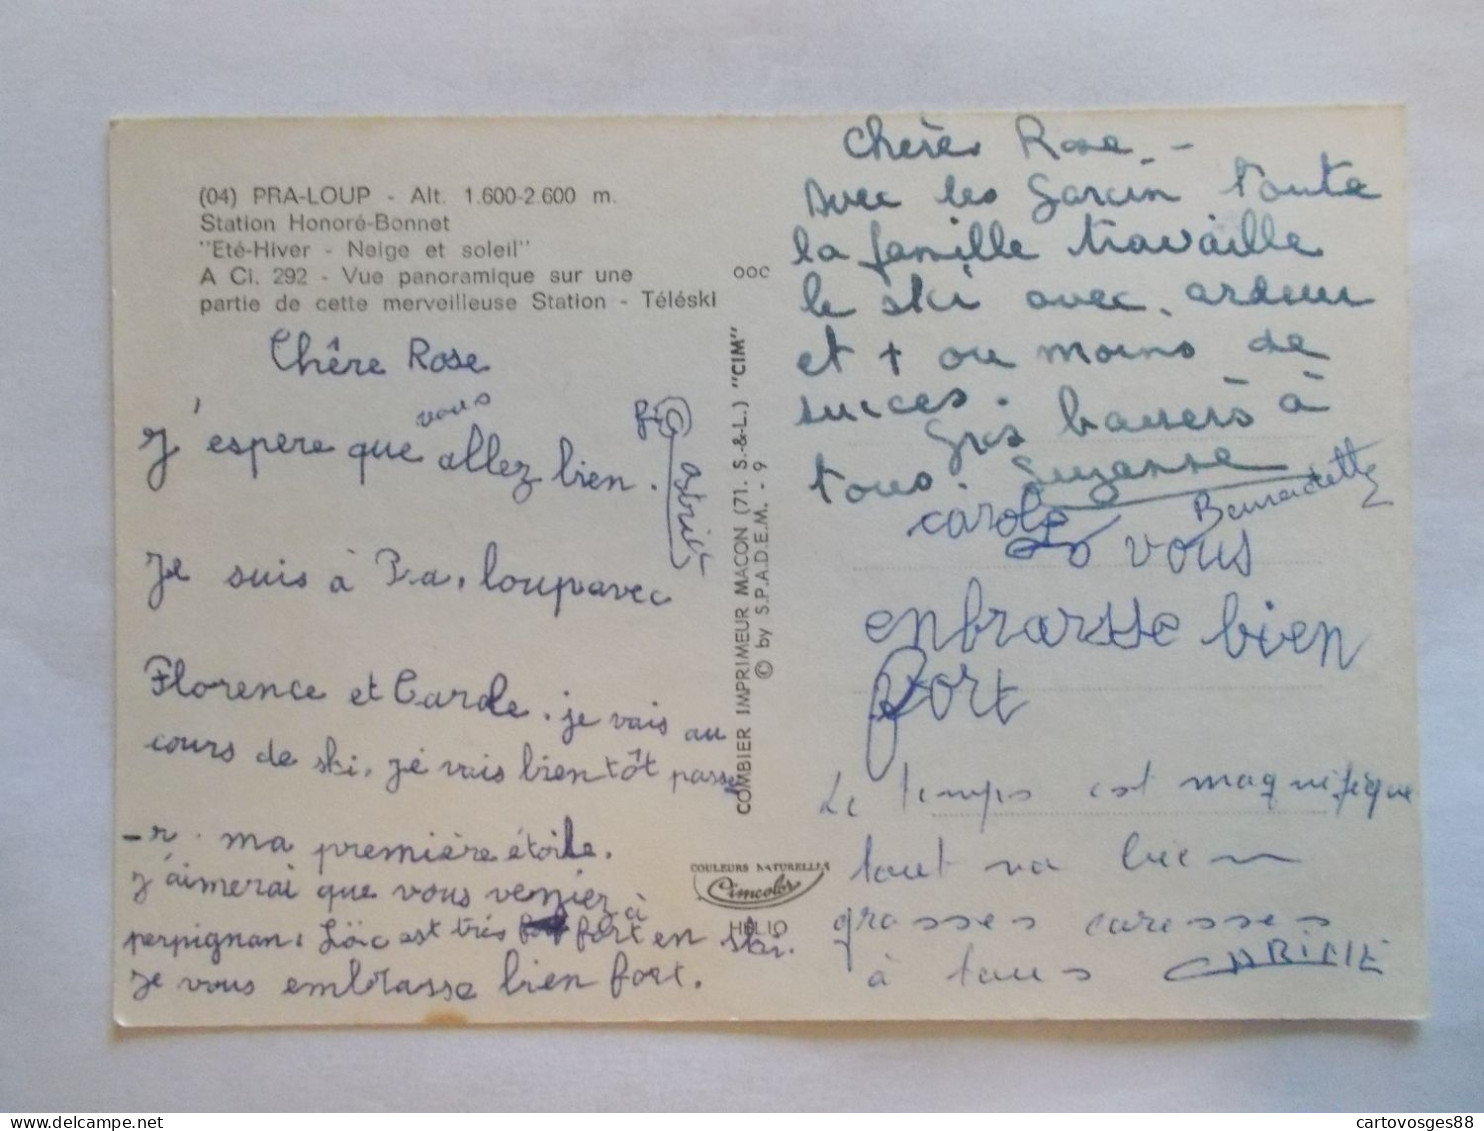 (04) PRA-LOUP - Alt. 1.600-2.600 m.
Station Honoré-Bonnet
"Eté-Hiver - Neige et soleil"
A Cl. 292 - Vue panoramique sur une
partie de cette merveilleuse Station - Téléski
Chêre Rose
J'espere que vous allez bien.
Je suis à Pra-loup avec
Florence et Carole. je vais au
cours de ski, je vais bientôt passe
-r. ma première étoile.
J'aimerai que vous veniez à
perpignan. Loïc est très fort en ski.
Je vous embrasse bien fort.
OOC
COMBIER IMPRIMEUR MACON (71. S.-&-L.) "CIM"
© by S.P.A.D.E.M. - 9
COULEURS NATURELLES
Cimcolor
HELIO
Chère Rose. -
Avec les Garcin toute
la famille travaille
le ski avec ardeur
et + ou moins de
succes.
Gros baisers à
tous. Suzanne
Bernadette
carole vous
enbrasse bien
fort
Le temps est magnifique
tout va bien
grosses caresses
à tous
cartovosges88